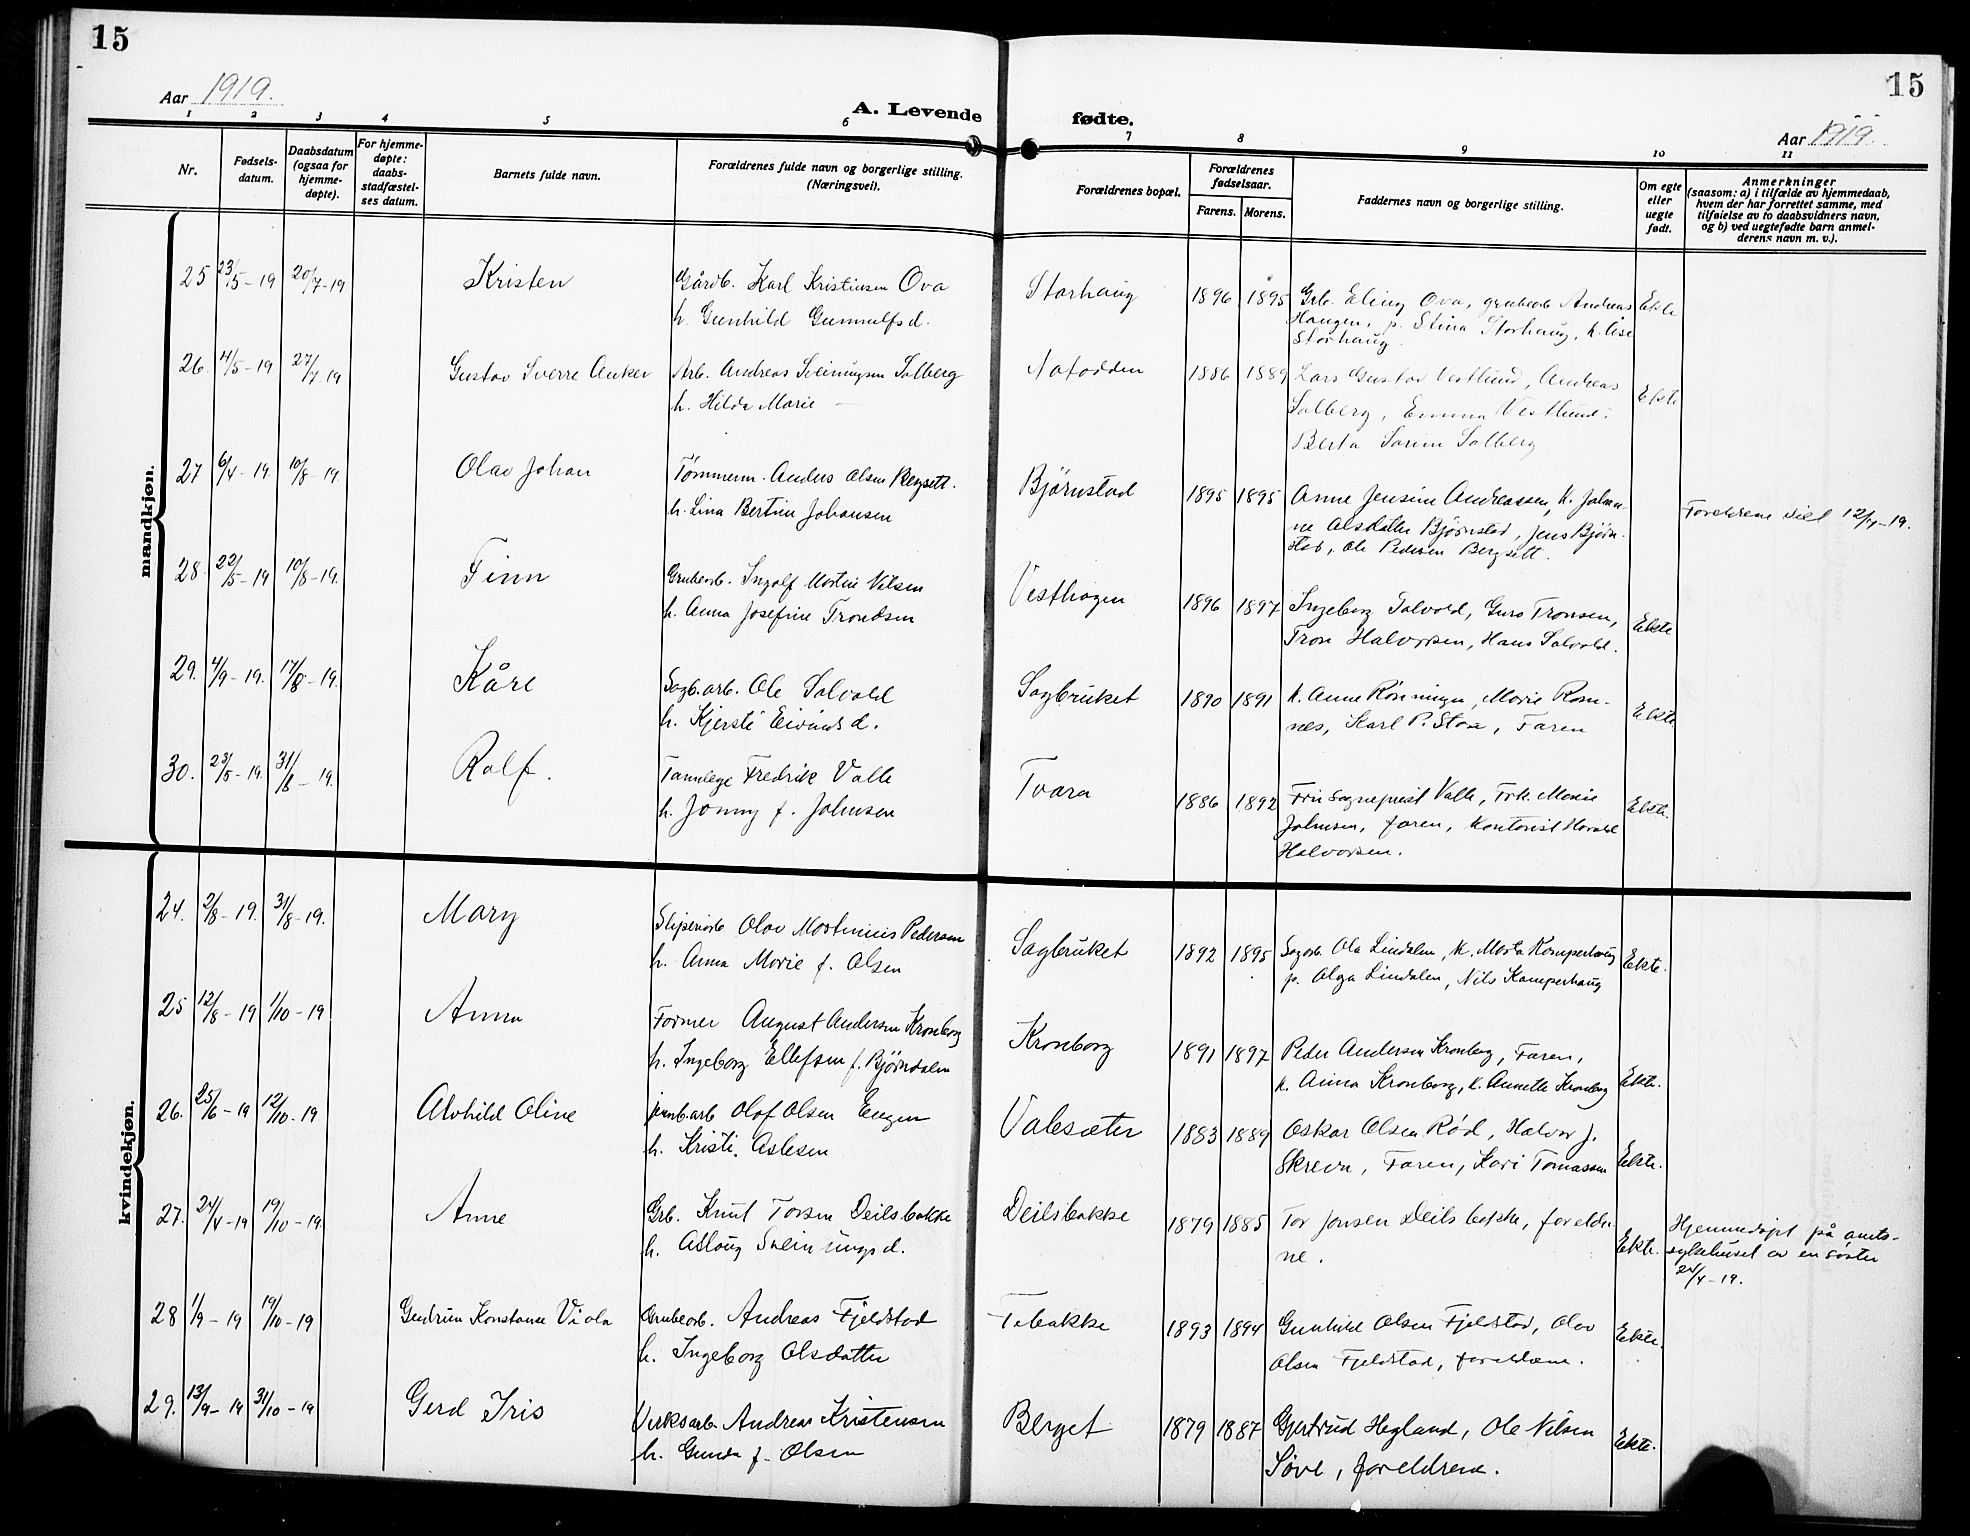 15
15
Aar 1919.
A. Levende fødte.
Aar 1919.
1 2 3 4 5 6 7 8 9 10 11
Nr.
Fødsels-
datum.
Daabsdatum
(ogsaa for
hjemme-
døpte).
For hjemme-
døpte:
daabs-
stadfæstel-
ses datum.
Barnets fulde navn.
Forældrenes fulde navn og borgerlige stilling.
(Næringsvei).
Forældrenes bopæl.
Forældrenes
fødselsaar.
Farens. Morens.
Faddernes navn og borgerlige stilling.
Om egte
eller
uegte
født.
Anmerkninger
(saasom: a) i tilfælde av hjemmedaab,
hvem der har forrettet samme, med
tilføielse av to daabsvidners navn,
og b) ved uegtefødte barn anmel-
derens navn m. v.).
mandkjøn.
25 23/5-19 20/7-19 Kristen
Gårdb. Karl Kristinsen Ova
h. Gunhild Gunnulfsd.
Storhaug 1896 1895
Grb. Eling Ova, grubearb Andreas
Haugen, p. Stina Storhaug, k. Åse
Storhaug.
Ekte
26. 4/5-19 27/7 19 Gustav Sverre Anker
Arb. Andreas Sveinungsen Solberg
h. Hilda Marie —
Notodden 1886 1889
Lars Gustav Vestlund, Andreas
Solberg, Emma Vestlund,
Berta Sarine Solberg
Ekte
27 6/4-19 10/8-19. Olav Johan
Tømmerm. Anders Olsen Bergsett.
h. Lina Bertine Johansen
Bjørnstad 1895 1895
Anne Jensine Andreassen, k. Johan-
ne Olsdatter Bjørnstad, Jens Bjørn-
stad, Ole Pedersen Bergsett.
Foreldrene viet 12/4-19.
28. 22/5-19 10/8-19. Finn
Grubearb. Ingolf Martin Nilsen
h. Anna Josefine Trondsen
Vesthagen 1896 1897
Ingeborg Solvold, Guro Tronsen,
Tron Halvorsen, Hans Solvold.
Ekte
29. 4/9-19. 17/8-19. Kåre
Sagb.arb. Ole Solvold
h. Kjersti Eivindsd.
Sagbruket 1890 1891
k. Anne Rønningen, Marie Rom-
nes, Karl P. Stoa, Faren
Ekte
30. 23/5-19. 31/8-19. Rolf.
Tannlege Fredrik Valle
h. Jonny f. Johnsen
Tvara 1886 1892
Fru Sogneprest Valle, Frk. Marie
Johnsen, faren, Kontorist Harald
Halvorsen.
Ekte.
kvindekjøn.
24. 2/8-19. 31/8-19. Mary
Sliperiarb Olav Martinius Pedersen
h. Anna Marie f. Olsen
Sagbruket 1892 1895
Sagarb. Ola Lindalen, k. Marta Kamperhaug
p. Olga Lindalen, Nils Kamperhaug
Ekte.
25 12/8-19 1/10-19 Anna
Former August Andersen Kronborg
h. Ingeborg Ellefsen f. Bjørndalen
Kronborg 1891 1897
Peder Andersen Kronborg, Faren,
k. Anna Kronborg, k. Annette Kronborg
Ekte.
26. 25/6-19 12/10-19 Alvhild Oline
jernb.arb Olof Olsen Engen
h. Kristi. Aslesen
Valesæter 1883 1889
Oskar Olsen Rød, Halvor J.
Skreva, Faren, Kari Tomassen
Ekte.
27. 24/4-19 19/10-19. Anne
Grb. Knut Torsen Deilsbakke
h. Aslaug Sveinungsd.
Deilsbakke 1879 1885
Tor Jonsen Deilsbakke, foreldre-
ne.
Ekte.
Hjemmedøpt på amts-
sykehuset av en søster
24/4-19.
28 1/9-19 19/10-19 Gudrun Konstanse Viola
Grubearb. Andreas Fjeldstad
h. Ingeborg Olsdatter
Tebakke 1893 1894
Gunhild Olsen Fjeldstad, Olav
Olsen Fjeldstad, foreldrene.
Ekte.
29. 13/9-19 31/10-19 Gerd Iris
Verksarb. Andreas Kristensen
h. Gunda f. Olsen
Berget 1879 1887
Gjertrud Hegland, Ole Nilsen
Søve, foreldrene.
Ekte.